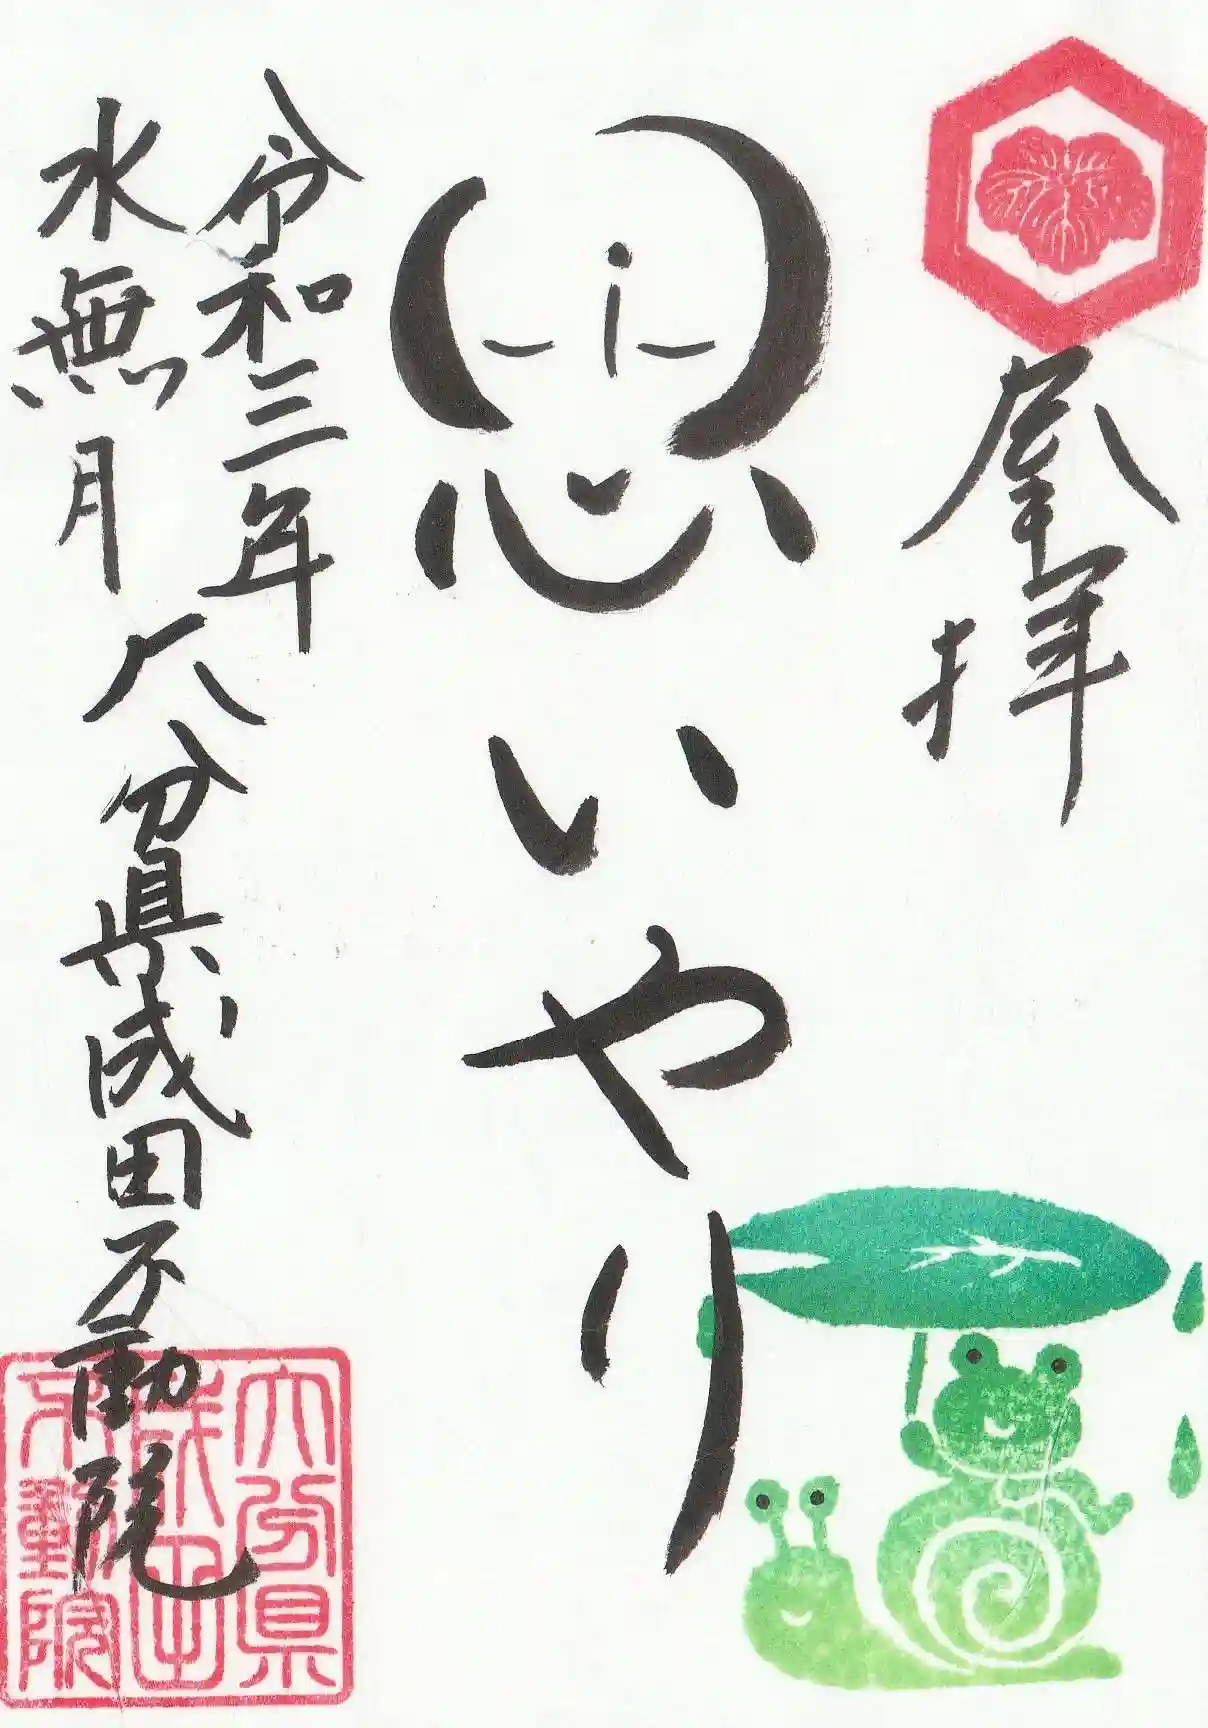 奉拝
思いやり
令和三年
水無月
大分県成田不動院
大分県
成田
不動院